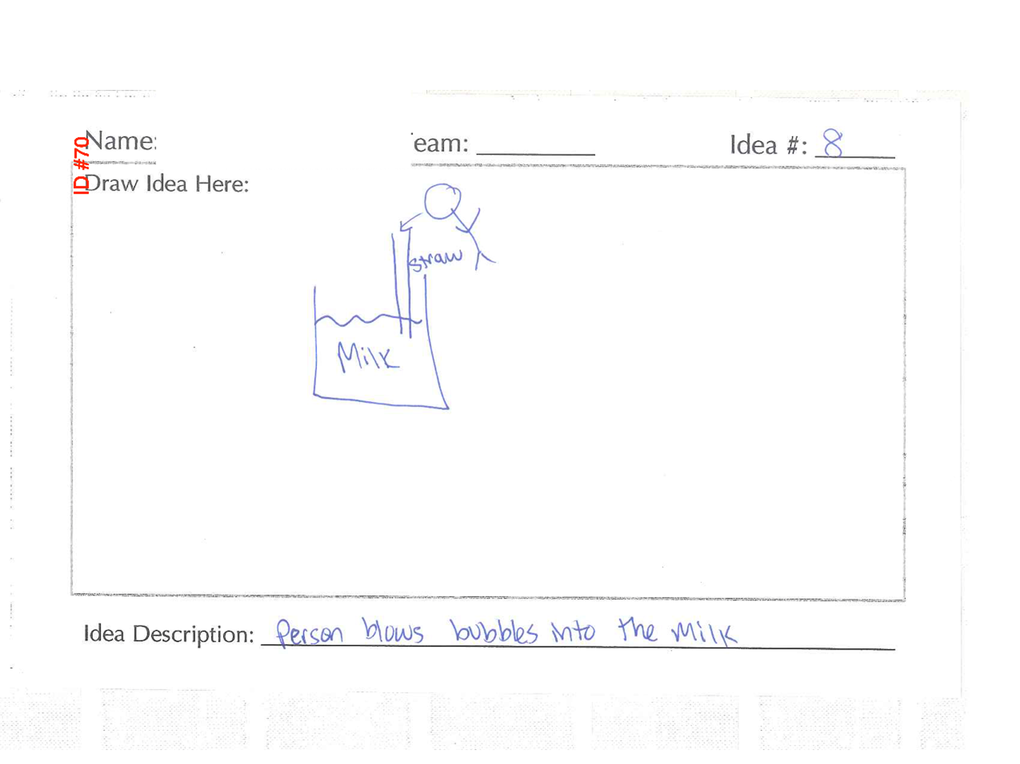 Name: eam: Idea #: 8
ID #70
Draw Idea Here:
straw
Milk
Idea Description: Person blows bubbles into the Milk